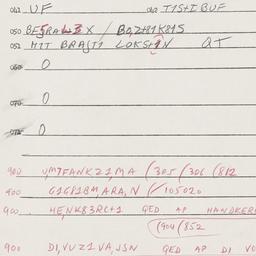 042 UF 043 T1S+I BUF
050 BF5RAL3X / BO,Z+81K81S
052 M1T BRAST1 LOKS+1N QT
060 0
070 0
0
900 V,M7FANKZ1,MA (305 / 306 (812
900 G1G818M,ARA,N (/105020
900 HENK83RC+1 QED AP HANDKER
(904 (852
900 D1,VUZ1VA,JSN QED AP D1 VO